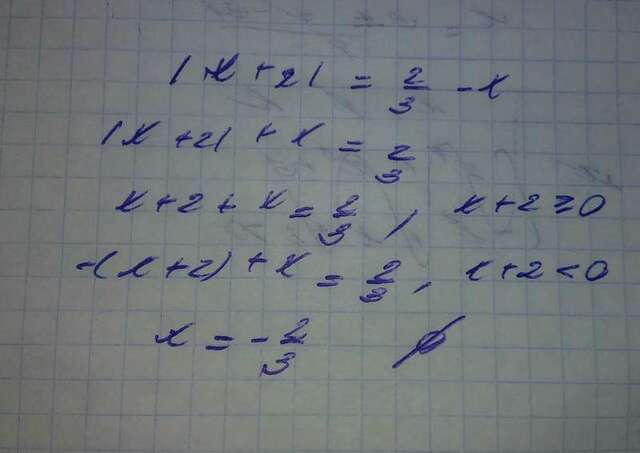 |x+2| = 2/3 - x
|x+2| + x = 2/3
x+2+x = 2/3, x+2≥0
-(x+2)+x = 2/3, x+2<0
x = -2/3 ∅